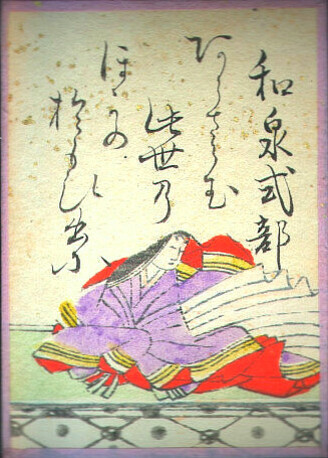 和泉式部
あらさらむ
此世乃
ほかの
おもひ